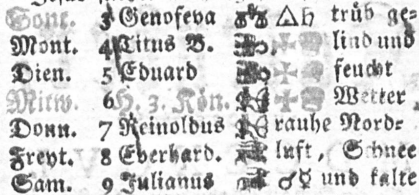 Sont. 3 Genofeva △♄ trüb ge-
Mont. 4 Titus B. lind und
Dien. 5 Eduard feucht
Mitw. 6 H. 3. Kön. Wetter
Donn. 7 Reinoldus rauhe Nord-
Freyt. 8 Eberhard. luft, Schnee
Sam. 9 Julianus ♂☿ und kalte